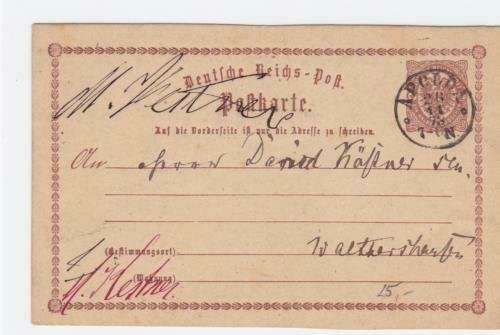 Deutsche Reichs-Post.
Postkarte.
Auf die Vorderseite ist nur die Adresse zu schreiben.
APOLDA
7-8 N
An Herrn David Kästner sen.
(Bestimmungsort)
Walthershausen
(Wohnung)
15,-